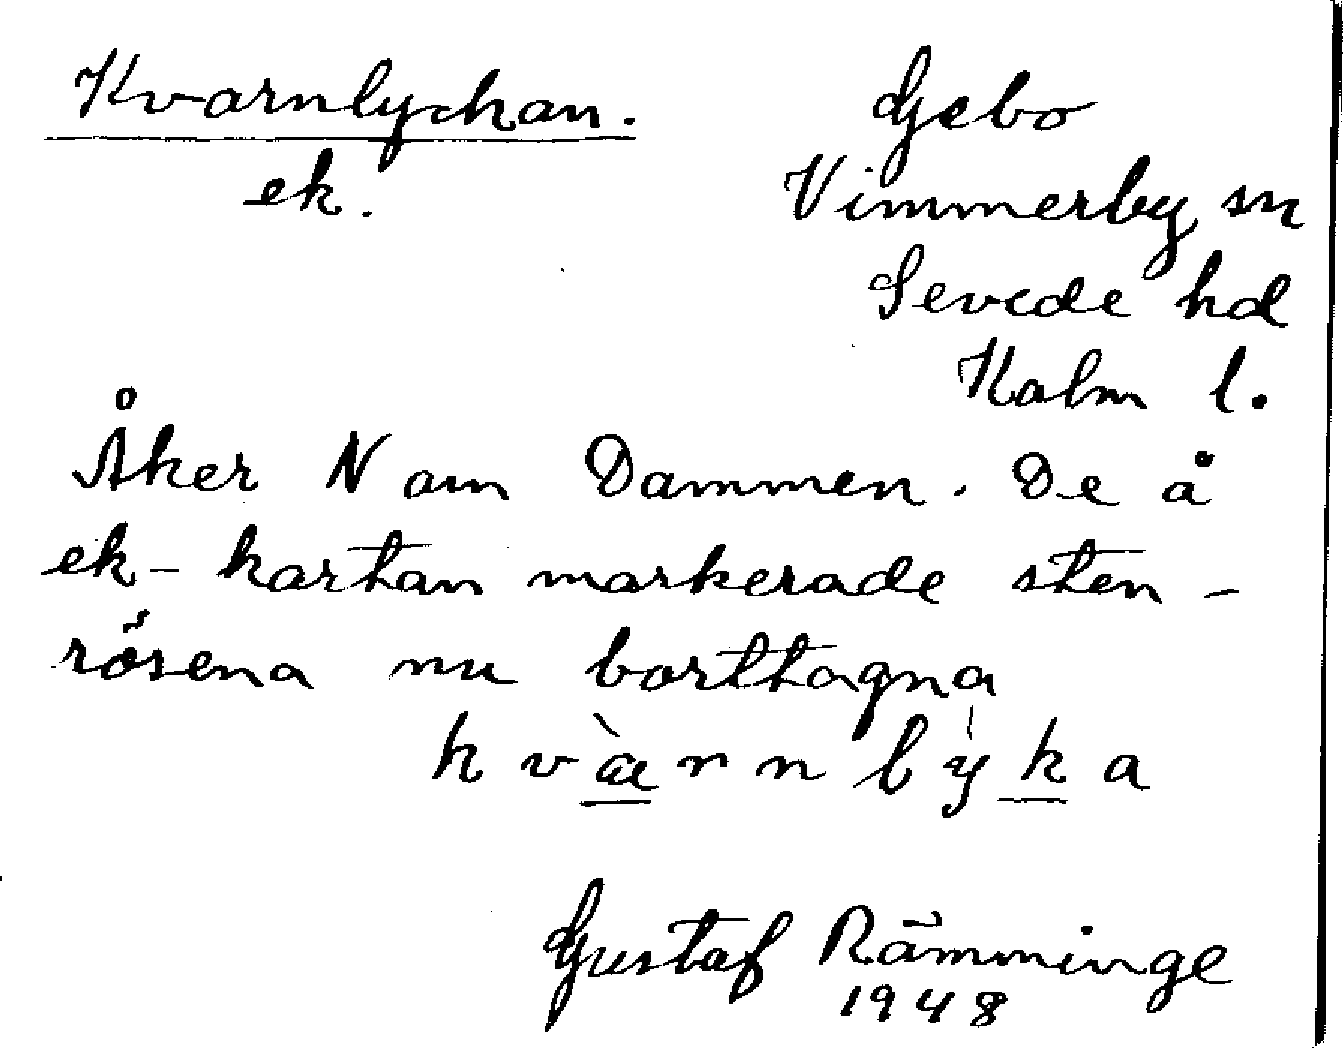 Kvarnlyckan.
ek.
Gebo
Vimmerby sn
Sevede hd
Kalm l.
Åker N om Dammen. De å
ek-kartan markerade sten-
rösena nu borttagna
kvàrnnlỳka
Gustaf Rämminge
1948